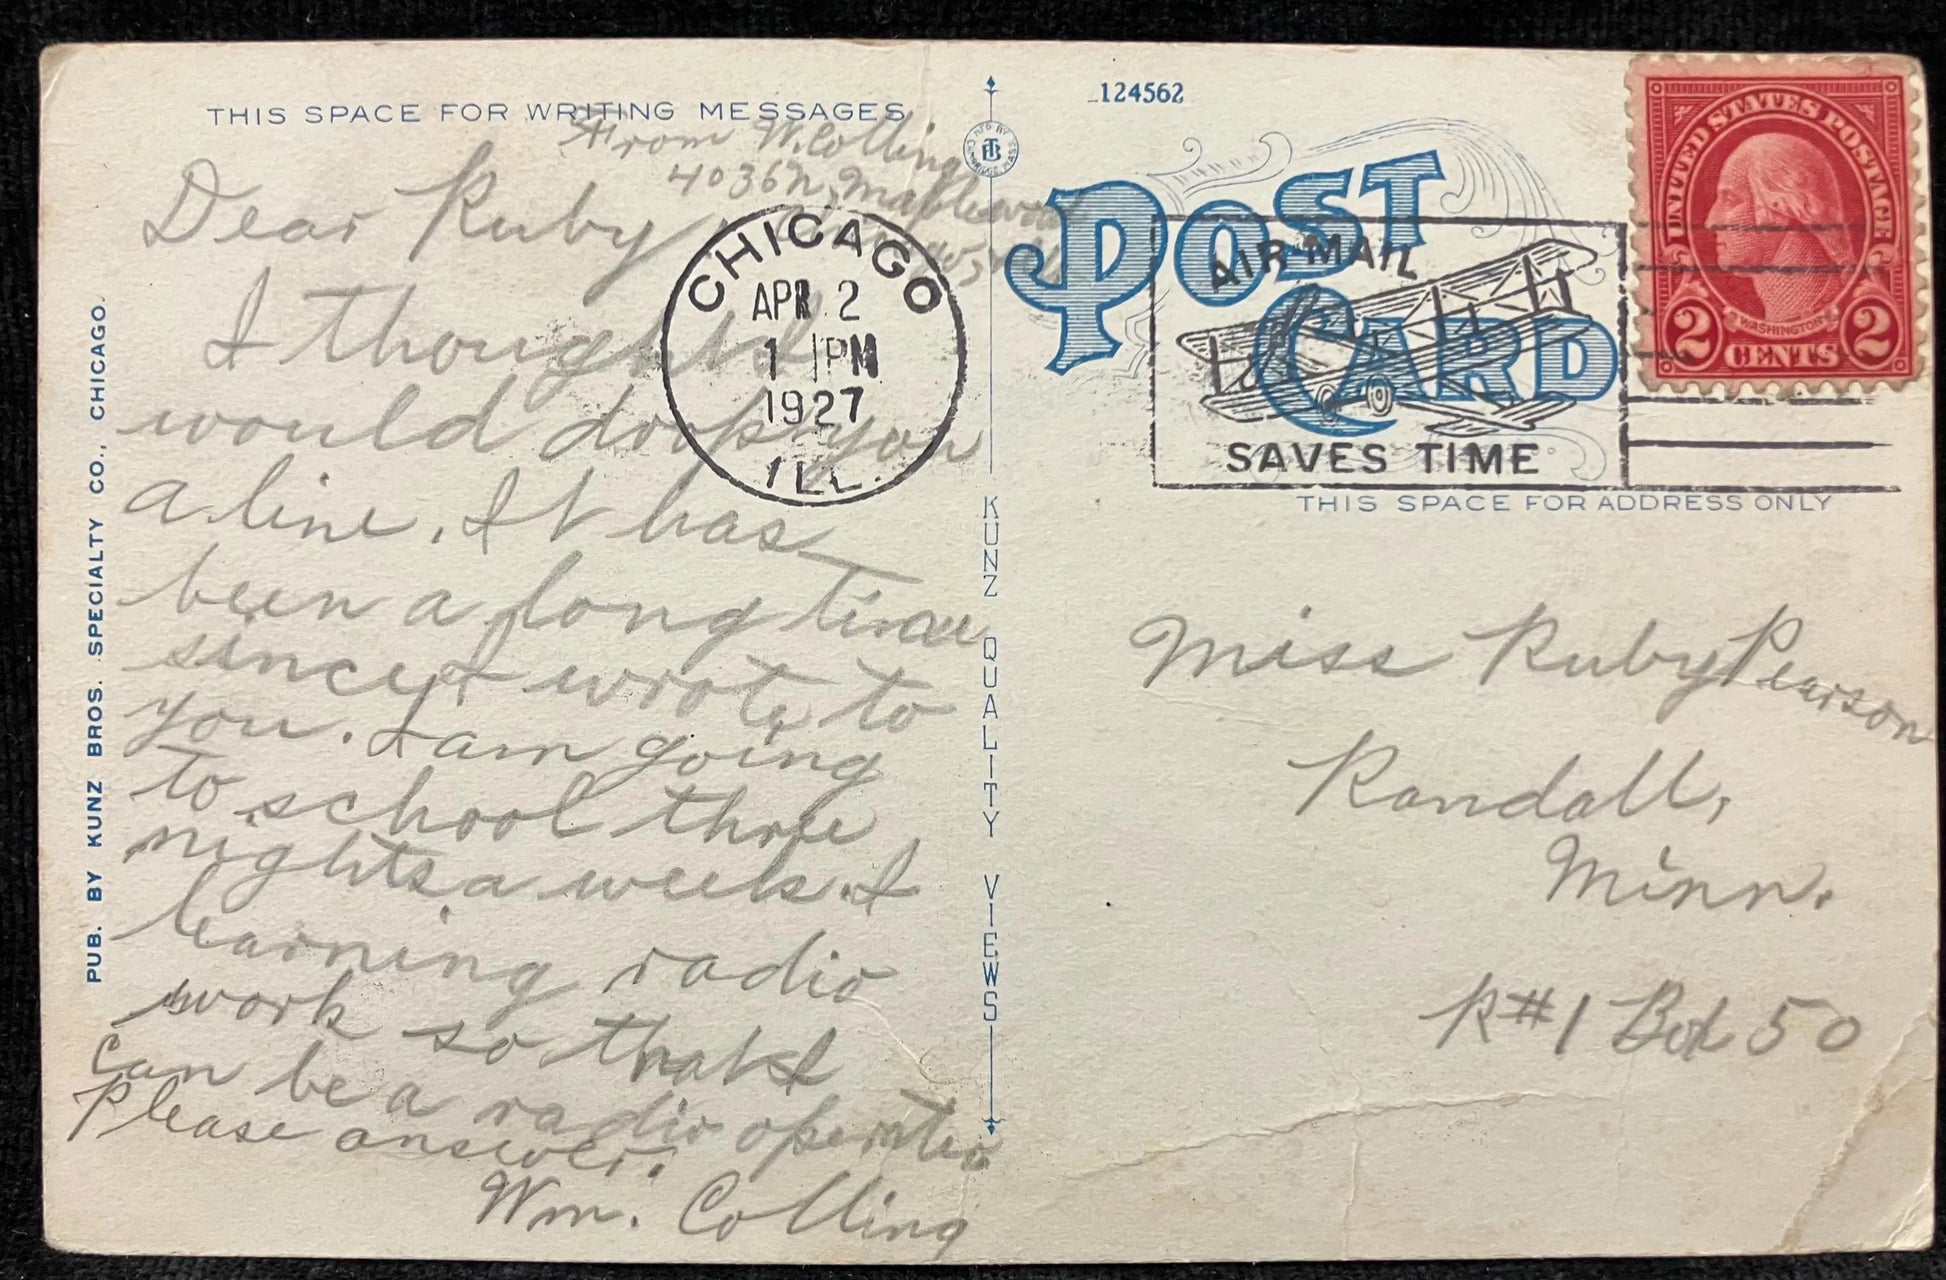 THIS SPACE FOR WRITING MESSAGES
From W. Colling
4036 N. Maplewood
Dear Ruby
I thought I
would drop you
a line. It has
been a long time
since I wrote to
you. I am going
to school three
nights a week. I
learning radio
work so that I
can be a radio operator
Please answer.
Wm. Colling
PUB. BY KUNZ BROS. SPECIALTY CO., CHICAGO.
CHICAGO
APR 2
1 PM
1927
ILL.
MFD BY
CTB
CAMBRIDGE, MASS
KUNZ QUALITY VIEWS
124562
POST
CARD
AIR MAIL
SAVES TIME
UNITED STATES POSTAGE
WASHINGTON
2 CENTS 2
THIS SPACE FOR ADDRESS ONLY
Miss Ruby Pearson
Randall,
Minn.
R#1 Box 50